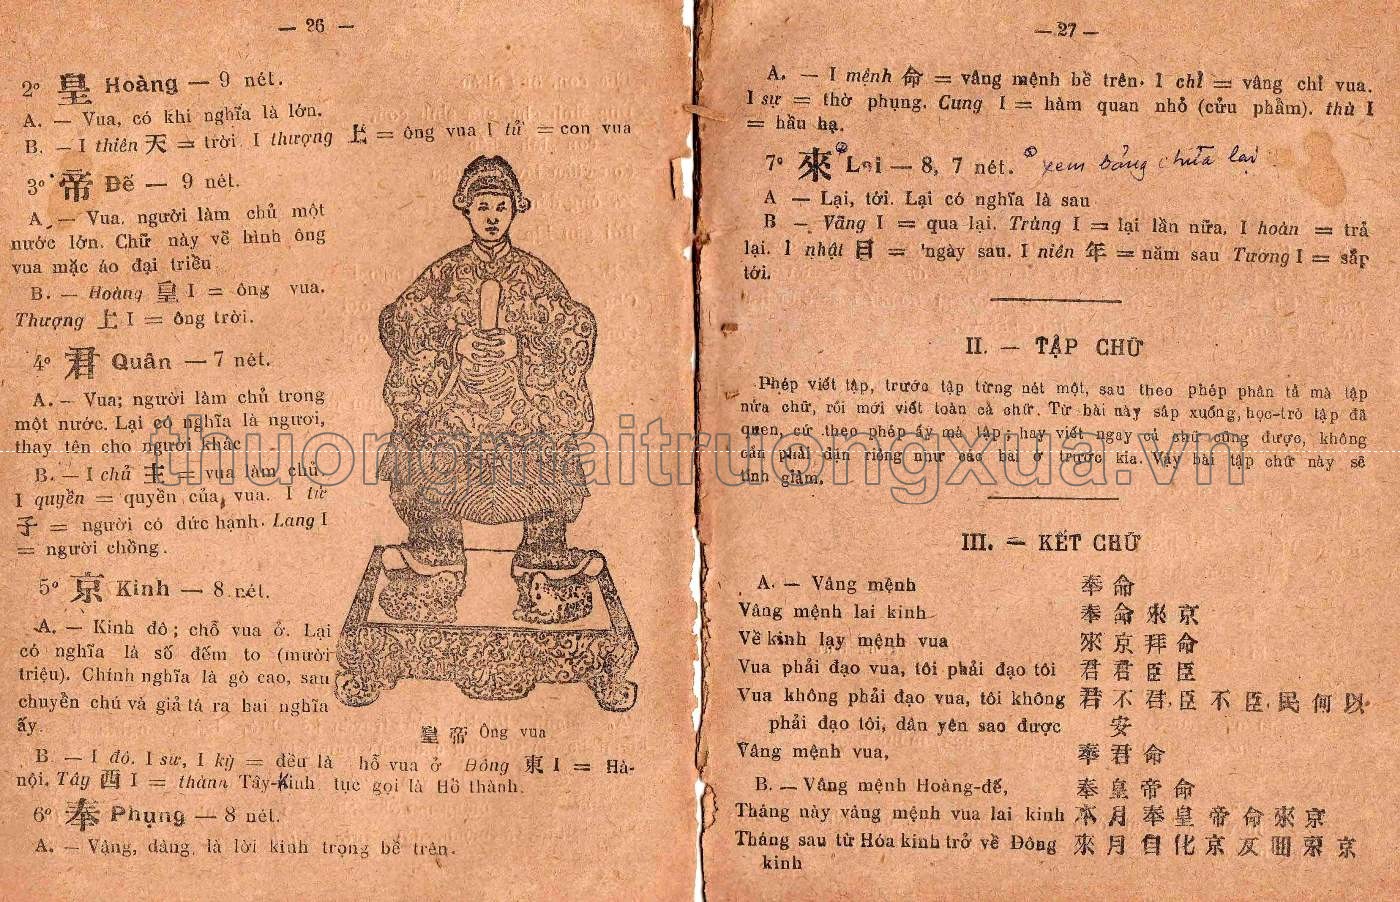 — 26 —
2º 皇 Hoàng — 9 nét.
A. — Vua, có khi nghĩa là lớn.
B. — I thiên 天 = trời I thượng 上 = ông vua I tử = con vua
3º 帝 Đế — 9 nét.
A. — Vua. người làm chủ một
nước lớn. Chữ này vẽ hình ông
vua mặc áo đại triều
B. — Hoàng 皇 I = ông vua.
Thượng 上 I = ông trời.
4º 君 Quân — 7 nét.
A. — Vua; người làm chủ trong
một nước. Lại có nghĩa là ngươi,
thay tên cho người khác
B. — I chủ 主 = vua làm chủ
I quyền = quyền của vua. I tử
子 = người có đức hạnh. Lang I
= người chồng.
5º 京 Kinh — 8 nét.
A. — Kinh đô; chỗ vua ở. Lại
có nghĩa là số đếm to (mười
triệu). Chính nghĩa là gò cao, sau
chuyển chú và giả tá ra hai nghĩa
ấy.
B — I đô. I sư, I kỳ = đều là hỗ vua ở Đông 東 I = Hà-
nội. Tây 西 I = thành Tây-Kinh tục gọi là Hồ thành.
6º 奉 Phụng — 8 nét.
A. — Vâng, dâng, là lời kính trọng bề trên.
皇 帝 Ông vua
— 27 —
A. — I mệnh 命 = vâng mệnh bề trên. I chỉ = vâng chỉ vua.
I sự = thờ phụng. Cung I = hàm quan nhỏ (cửu phẩm). thù I
= hầu hạ.
7º 來 Lai — 8, 7 nét. xem bảng chữa lại
A — Lại, tới. Lại có nghĩa là sau
B — Vãng I = qua lại. Trùng I = lại lần nữa. I hoàn = trả
lại. I nhật 日 = ngày sau. I niên 年 = năm sau Tương I = sắp
tới.
II. — TẬP CHỮ
Phép viết tập, trước tập từng nét một, sau theo phép phân tả mà tập
nửa chữ, rồi mới viết toàn cả chữ. Từ bài này sắp xuống, học-trò tập đã
quen, cứ theo phép ấy mà tập; hay viết ngay cả chữ cũng được, không
cần phải dặn riêng như các bài ở trước kia. Vậy bài tập chữ này sẽ
tinh giảm.
III. — KẾT CHỮ
A. — Vâng mệnh 奉 命
Vâng mệnh lai kinh 奉 命 來 京
Về kinh lạy mệnh vua 來 京 拜 命
Vua phải đạo vua, tôi phải đạo tôi 君 君 臣 臣
Vua không phải đạo vua, tôi không 君 不 君. 臣 不 臣. 民 何 以
phải đạo tôi, dân yên sao được 安
Vâng mệnh vua, 奉 君 命
B. — Vâng mệnh Hoàng-đế, 奉 皇 帝 命
Tháng này vâng mệnh vua lai kinh 本 月 奉 皇 帝 命 來 京
Tháng sau từ Hóa kinh trở về Đông 來 月 自 化 京 反 回 東 京
kinh
thuongmaitruongxua.vn